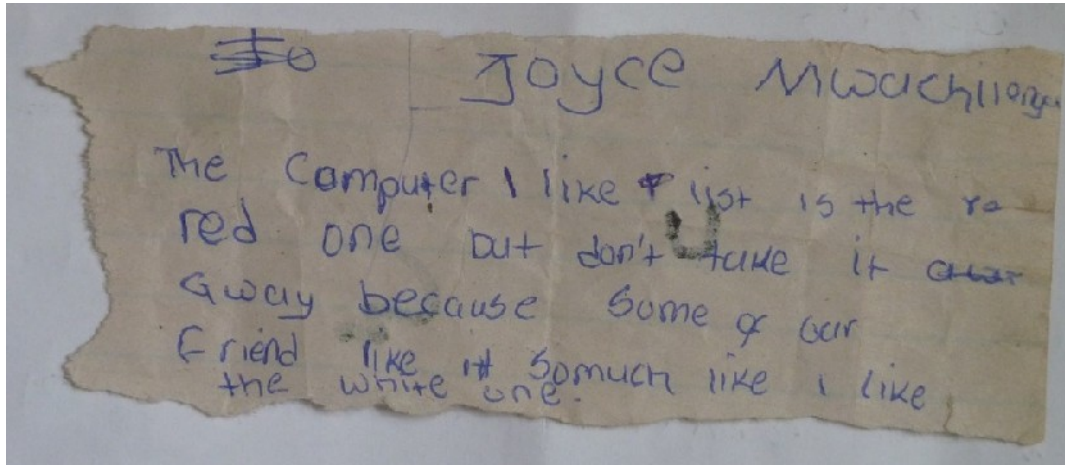 Joyce Mwachilenga
The Computer I like list is the re
red one but don't take it
away because some of our
friend like it somuch like i like
the white one.